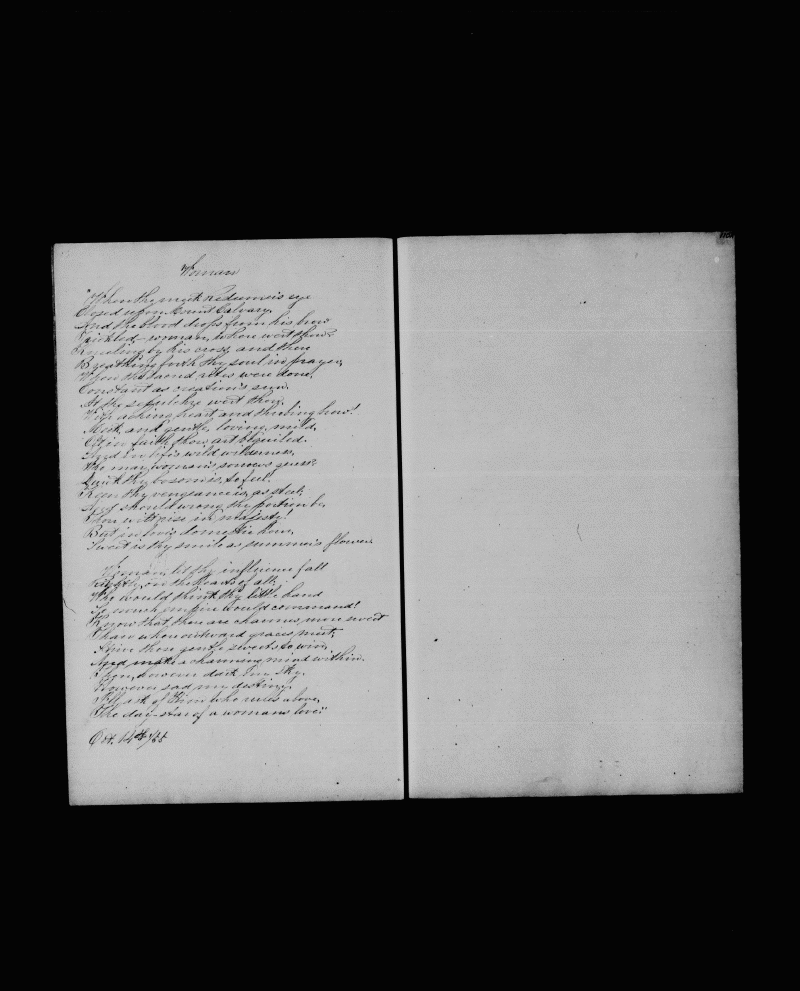 Woman
"When thy meek Redeemer's eye
Closed upon Mount Calvary,
And the blood drops from his brow
Trickled, woman, where wert thou?
Kneeling by his cross, and there
Breathing forth thy soul in prayer,
When the sacred rites were done,
Constant as creation's sun.
At the sepulchre wert thou,
With aching heart, and throbbing brow!
Meek, and gentle, loving, mild,
Oft in faith, thou art beguiled.
And in life's wild wilderness,
The man, woman's sorrows guess?
Quick thy bosom is, to feel,
Keen thy vengeance is, as steel,
And should wrong thy portion be,
Thou wilt rise in majesty!
But in love's domestic hour,
Sweet is thy smile as summer's flower.
Woman, let thy influence fall
on the hearts of all;
Who would think thy little hand
So much empire would command!
Know that, there are charms, more sweet
Than when outward graces meet,
Strive those gentle sweets to win,
And make a charming mind within.
Then, however dark my sky,
However sad my destiny,
I'll ask of Him who rules above,
The day-star of a woman's love."
Oct. 14th/55